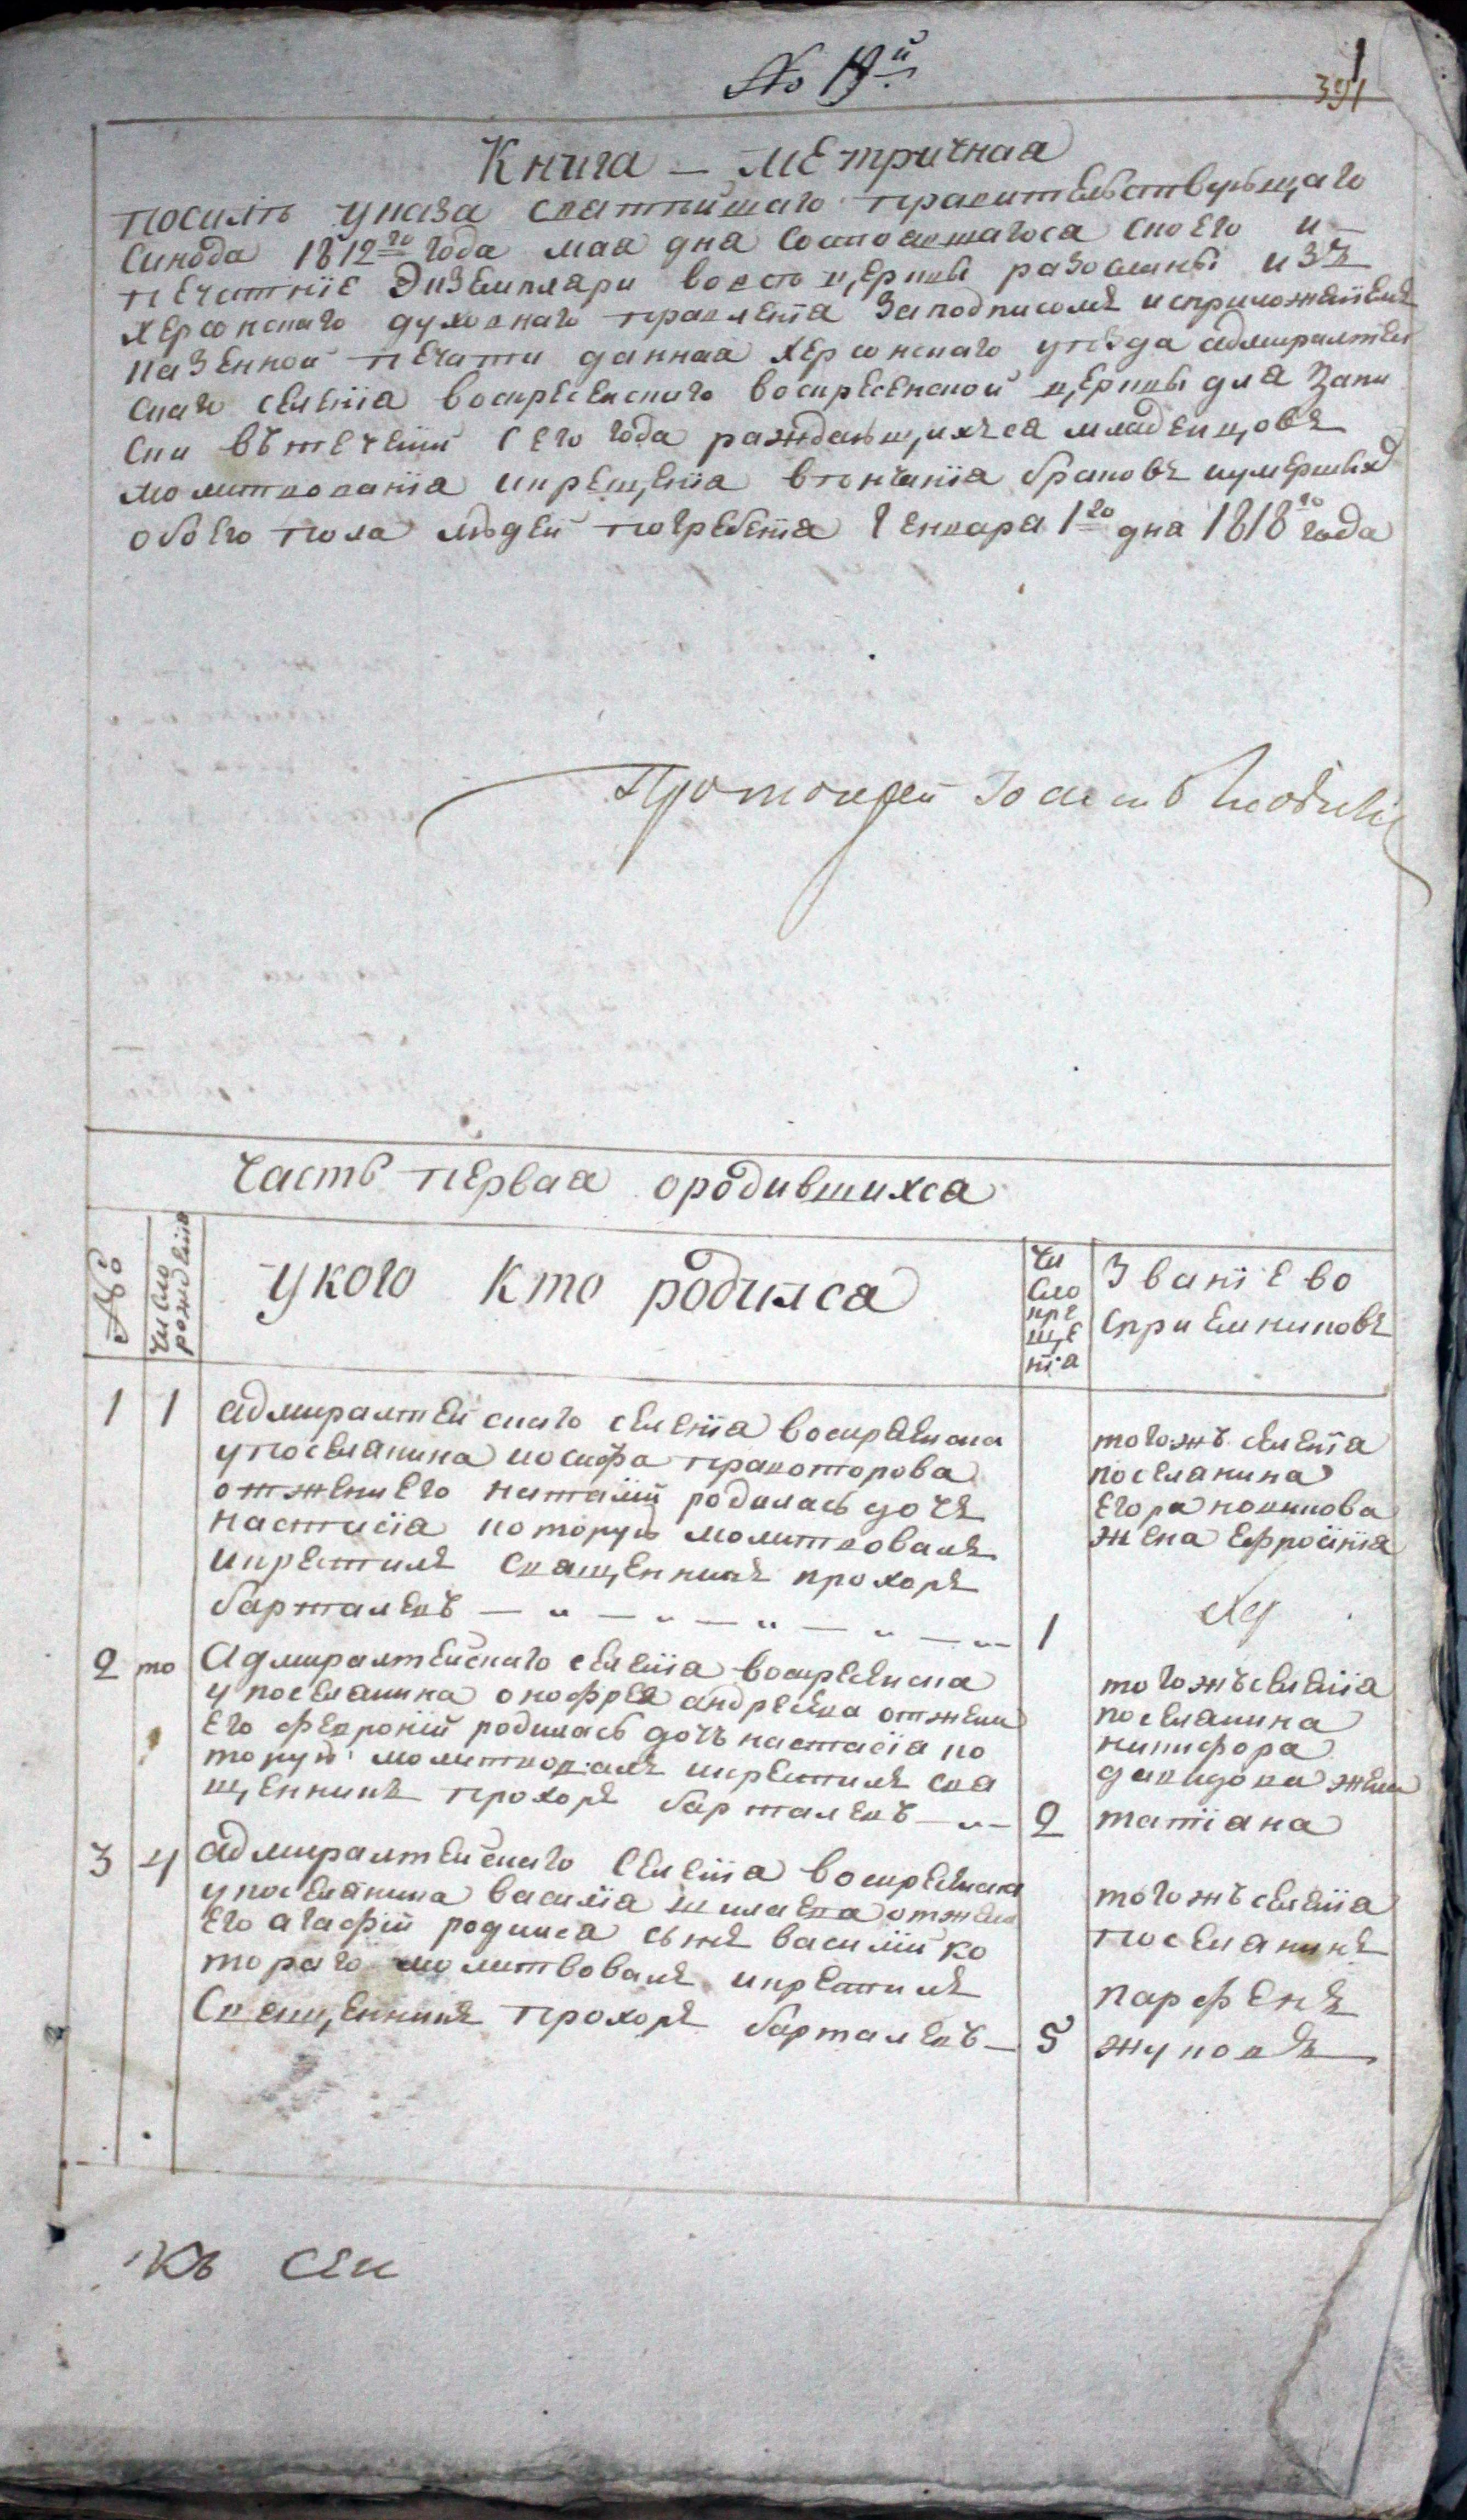 № 19й
391
Книга – метричная
посилѣ указа святѣйшаго правительствующаго
синода 1812го года мая дня состоявшагося своего и
печатніе экземпляри вовсѣ церквы разосланы изъ
херсонскаго духовнаго правленія заподписомъ исприложеніемъ
казенной печати данная херсонскаго уѣзда адмиралтей
скаго селенія воскресенскаго воскресенской церквы для запи
ски въ теченіи сего года раждающихъся младенцовъ
молитвованія икрещенія вѣнчанія браковъ иумершихъ
обоего пола людей погребенія Генваря 1го дня 1818го года
Протоиерей
Часть первая ородившихся
число рожденія
укого кто родился
Чи
сло
кре
ще
нія
Званіе во
спріемниковъ
1 1 адмиралтейскаго селенія воскресенска
упоселянина иосифа
отжены его наталіи родилась дочъ
настасія которую молитвовалъ
икрестилъ священникъ прохоръ
барталевъ — „ — „ — „ — „ — „ — 1
тогожъ селенія
поселянина
егора новикова
жена ефросинія
2 то Адмиралтейскаго селенія воскресенска
у поселянина онофрея андреева отжены
его февроніи родилась дочъ настасія ко
торую молитвовалъ икрестилъ свя
щенникъ прохоръ барталевъ — „ — 2
тогожъ селенія
поселянина
никифора
давидова жена
татіана
3 4 адмиралтейскаго селенія воскресенска
упоселянина василія отжены
его агафіи родился сынъ василій ко
тораго молитвовалъ икрестилъ
Священникъ прохоръ барталевъ — 5
тогожъ селенія
поселянинъ
парфенъ
жуковъ
къ сей